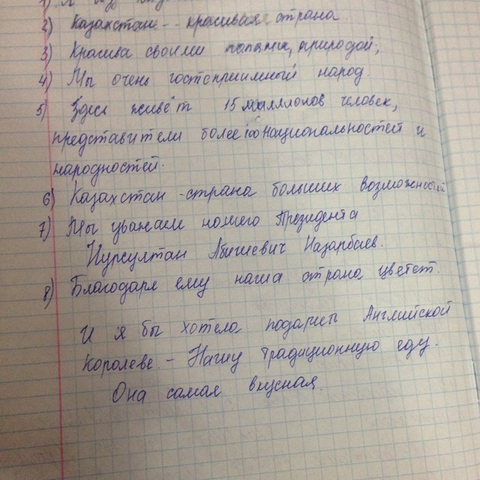 1) Я
2) Казахстан - красивая страна
3) Красива своими природой,
4) Мы очень гостоприимный народ
5) Здесь живёт 15 миллионов человек,
представители более 100 национальностей и
народностей.
6) Казахстан - страна больших возможностей
7) Мы уважаем нашего Президента
Нурсултан Абишевич Назарбаев.
8) Благодаря ему наша страна цветет.
И я бы хотела подарить Английской
Королеве - Нашу традиционную еду.
Она самая вкусная